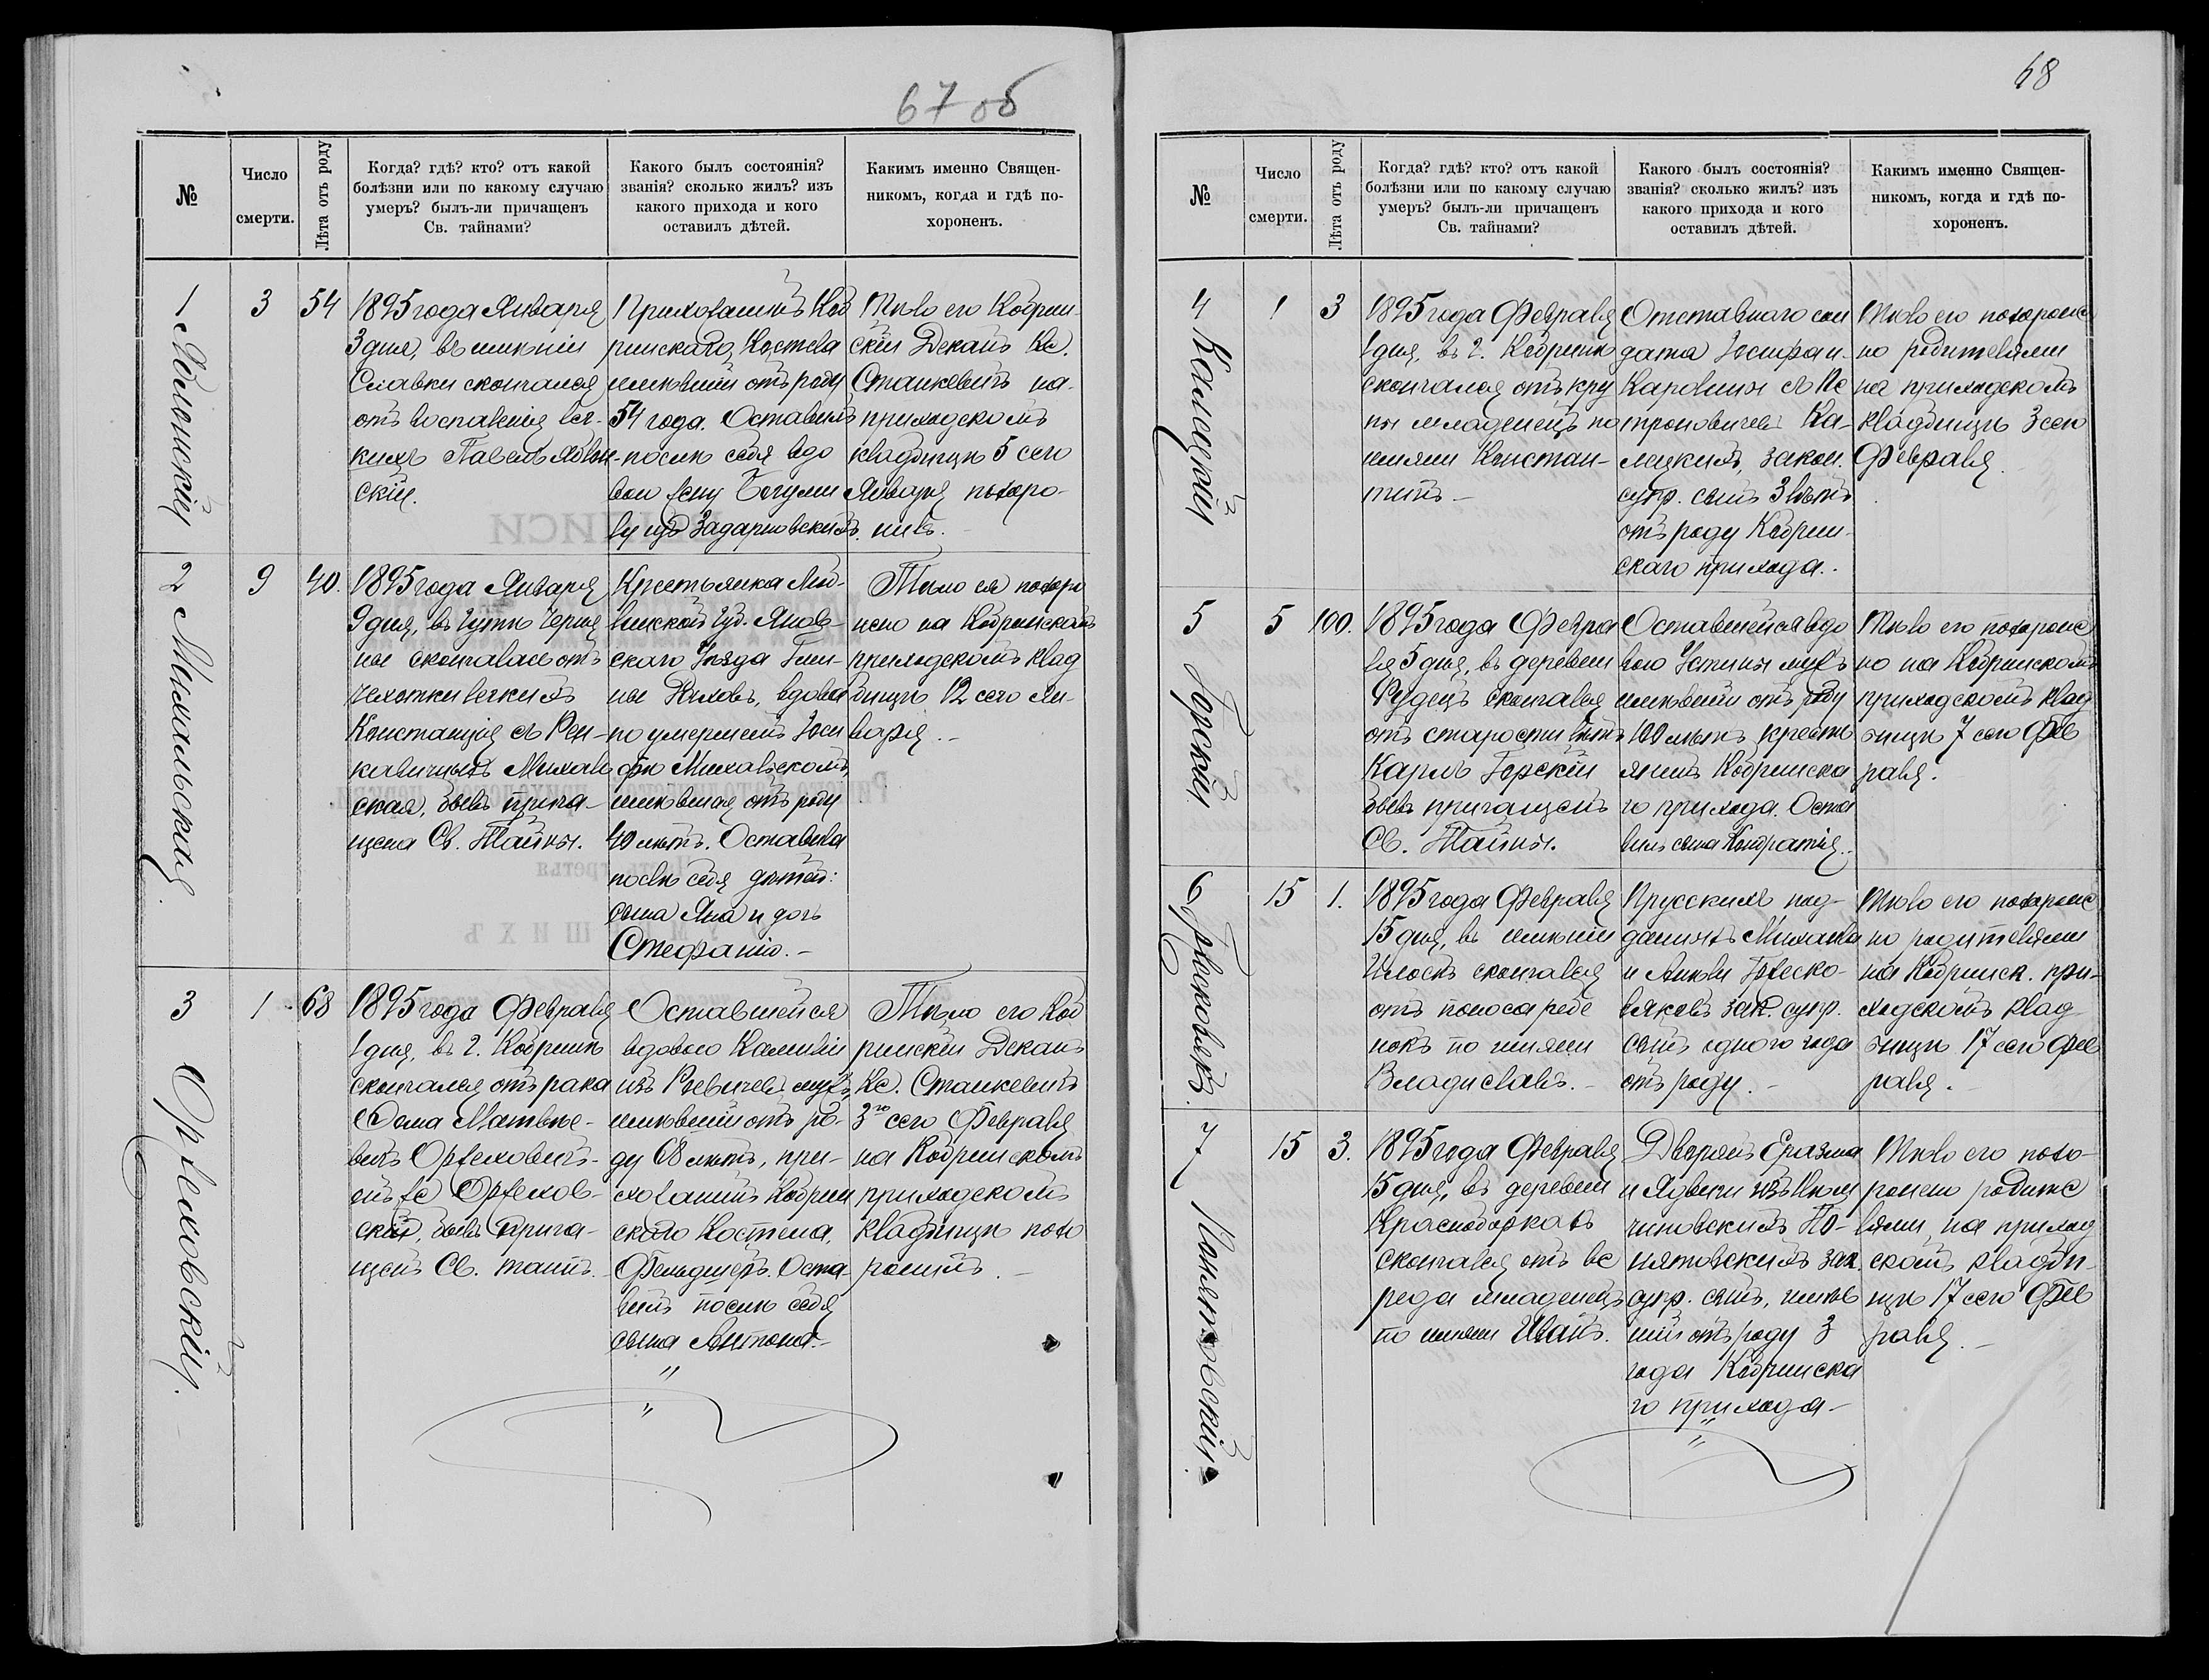 67 об
№
Число
смерти.
Лѣта отъ роду
Когда? гдѣ? кто? отъ какой
болѣзни или по какому случаю
умеръ? былъ-ли причащенъ
Св. тайнами?
Какого былъ состоянія?
званія? сколько жилъ? изъ
какого прихода и кого
оставилъ дѣтей.
Какимъ именно Священ-
никомъ, когда и гдѣ по-
хороненъ.
1
3
54
1895 года Января
3 дня, въ имѣніи
скончался
отъ воспаленія лег-
кихъ Павелъ
скій.
Прихожанинъ Коб
ринскаго Костела
имѣвшій отъ роду
54 года. Оставилъ
послѣ себя вдо
вою жену
ву изъ
Тѣло его Кобрин-
скій Деканъ Кс.
Станкевичъ на
приходскомъ
кладбищѣ 5 сего
Января похоро-
нилъ.
2 Михальская
9
40.
1895 года Января
9 дня, въ
скончалась отъ
чахотки легкихъ
Констанція съ Рен-
Михаль
ская, бывъ прича-
щена Св. Тайнъ.
Крестьянка Люб-
линской Губ. Янов-
скаго Уѣзда Гми-
ны вдова
по умершемъ Іоси
фѣ Михальскомъ,
имѣвшая отъ роду
40 лѣтъ. Оставила
послѣ себя дѣтей:
сына Яна и дочь
Стефанію.-
Тѣло ея похоро
нено на Кобринскомъ
приходскомъ клад
бищѣ 12 сего Ян-
варя.-
3 Оржеховскій.
1
68
1895 года Февраля
1 дня, въ г. Кобринѣ
скончался отъ рака
Ѳома Матвѣе-
вичъ Оржеховичъ-
онъ же Оржехов-
скій, бывъ прича-
щенъ Св. таинъ.
Оставшейся
вдовою Камиліи
изъ мужъ,
имѣвшій отъ ро-
ду 68 лѣтъ, при-
хожанинъ Кобрин
скаго Костела,
Фельдшеръ. Оста
вилъ послѣ себя
сына Антона.-
Тѣло его Коб
ринскій Деканъ
Кс. Станкевичъ
3го сего Февраля
на Кобринскомъ
приходскомъ
кладбищѣ похо
ронилъ.-
68
№
Число
смерти.
Лѣта отъ роду
Когда? гдѣ? кто? отъ какой
болѣзни или по какому случаю
умеръ? былъ-ли причащенъ
Св. тайнами?
Какого былъ состоянія?
званія? сколько жилъ? изъ
какого прихода и кого
оставилъ дѣтей.
Какимъ именно Священ-
никомъ, когда и гдѣ по-
хороненъ.
4 Калицкій
1
3
1895 года Февраля
1 дня, въ г. Кобринѣ
скончался отъ кру
пы младенецъ по
имени Констан-
тинъ-
Отставнаго сол
дата Іосифа и
Каролины съ Пе
троновичевъ Ка-
лицкихъ, закон.
супр. сынъ 3 лѣтъ
отъ роду Кобрин-
скаго прихода.
Тѣло его похороне
но родителями
на приходскомъ
кладбищѣ 3 сего
Февраля.
5 Горскій
5
100.
1895 года Февра
ля 5 дня, въ деревни
Рудецъ скончался
отъ старости лѣтъ
Карлъ Горскій
бывъ причащенъ
Св. Тайнъ.
Оставшейся вдо
вою Устины мужъ
имѣвшій отъ роду
100 лѣтъ, кресть
янинъ Кобринска
го прихода. Оста
вилъ сына Кондратія.
Тѣло его похороне
но на Кобринскомъ
приходскомъ клад
бищѣ 7 сего Фев
раля.
6 Гржесковякъ.
15
1.
1895 года Февраля
15 дня, въ имѣніи
Илоскъ скончался
отъ поноса ребе
нокъ по имени
Владиславъ.-
Прусскихъ под-
данныхъ Михаила
и Гржеско-
вяковъ зак. супр.
сынъ одного года
отъ роду.-
Тѣло его похороне
но родителями
на Кобринск. при-
ходскомъ клад
бищѣ 17 сего Фев
раля.
7 Понятовскій.
15
3.
1895 года Февраля
15 дня, въ деревни
скончался отъ
младенецъ
по имени Иванъ.
Дворянъ Еразма
и Ядвиги изъ
По-
нятовскихъ зак.
супр. сынъ, имѣв
шій отъ роду 3
года Кобринска
го прихода-
Тѣло его похо-
ронено родите
лями, на приход
скомъ кладби-
щѣ 17 сего Фев
раля.-